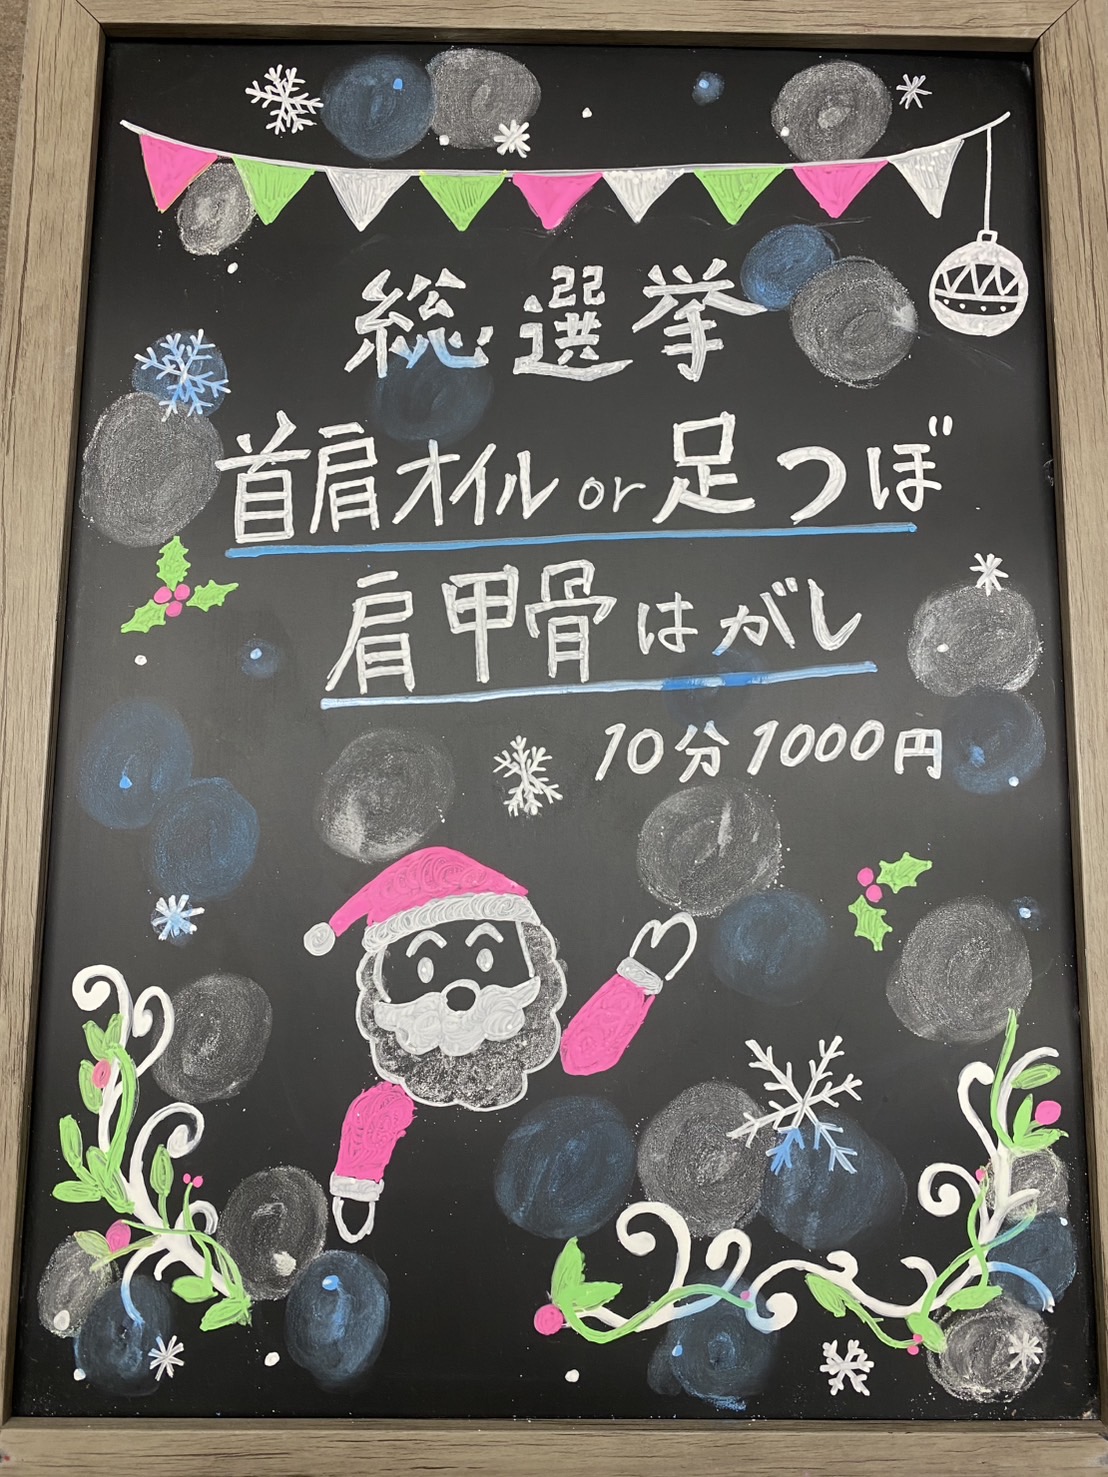 総選挙
首肩オイル or 足つぼ
肩甲骨はがし
10分 1000円